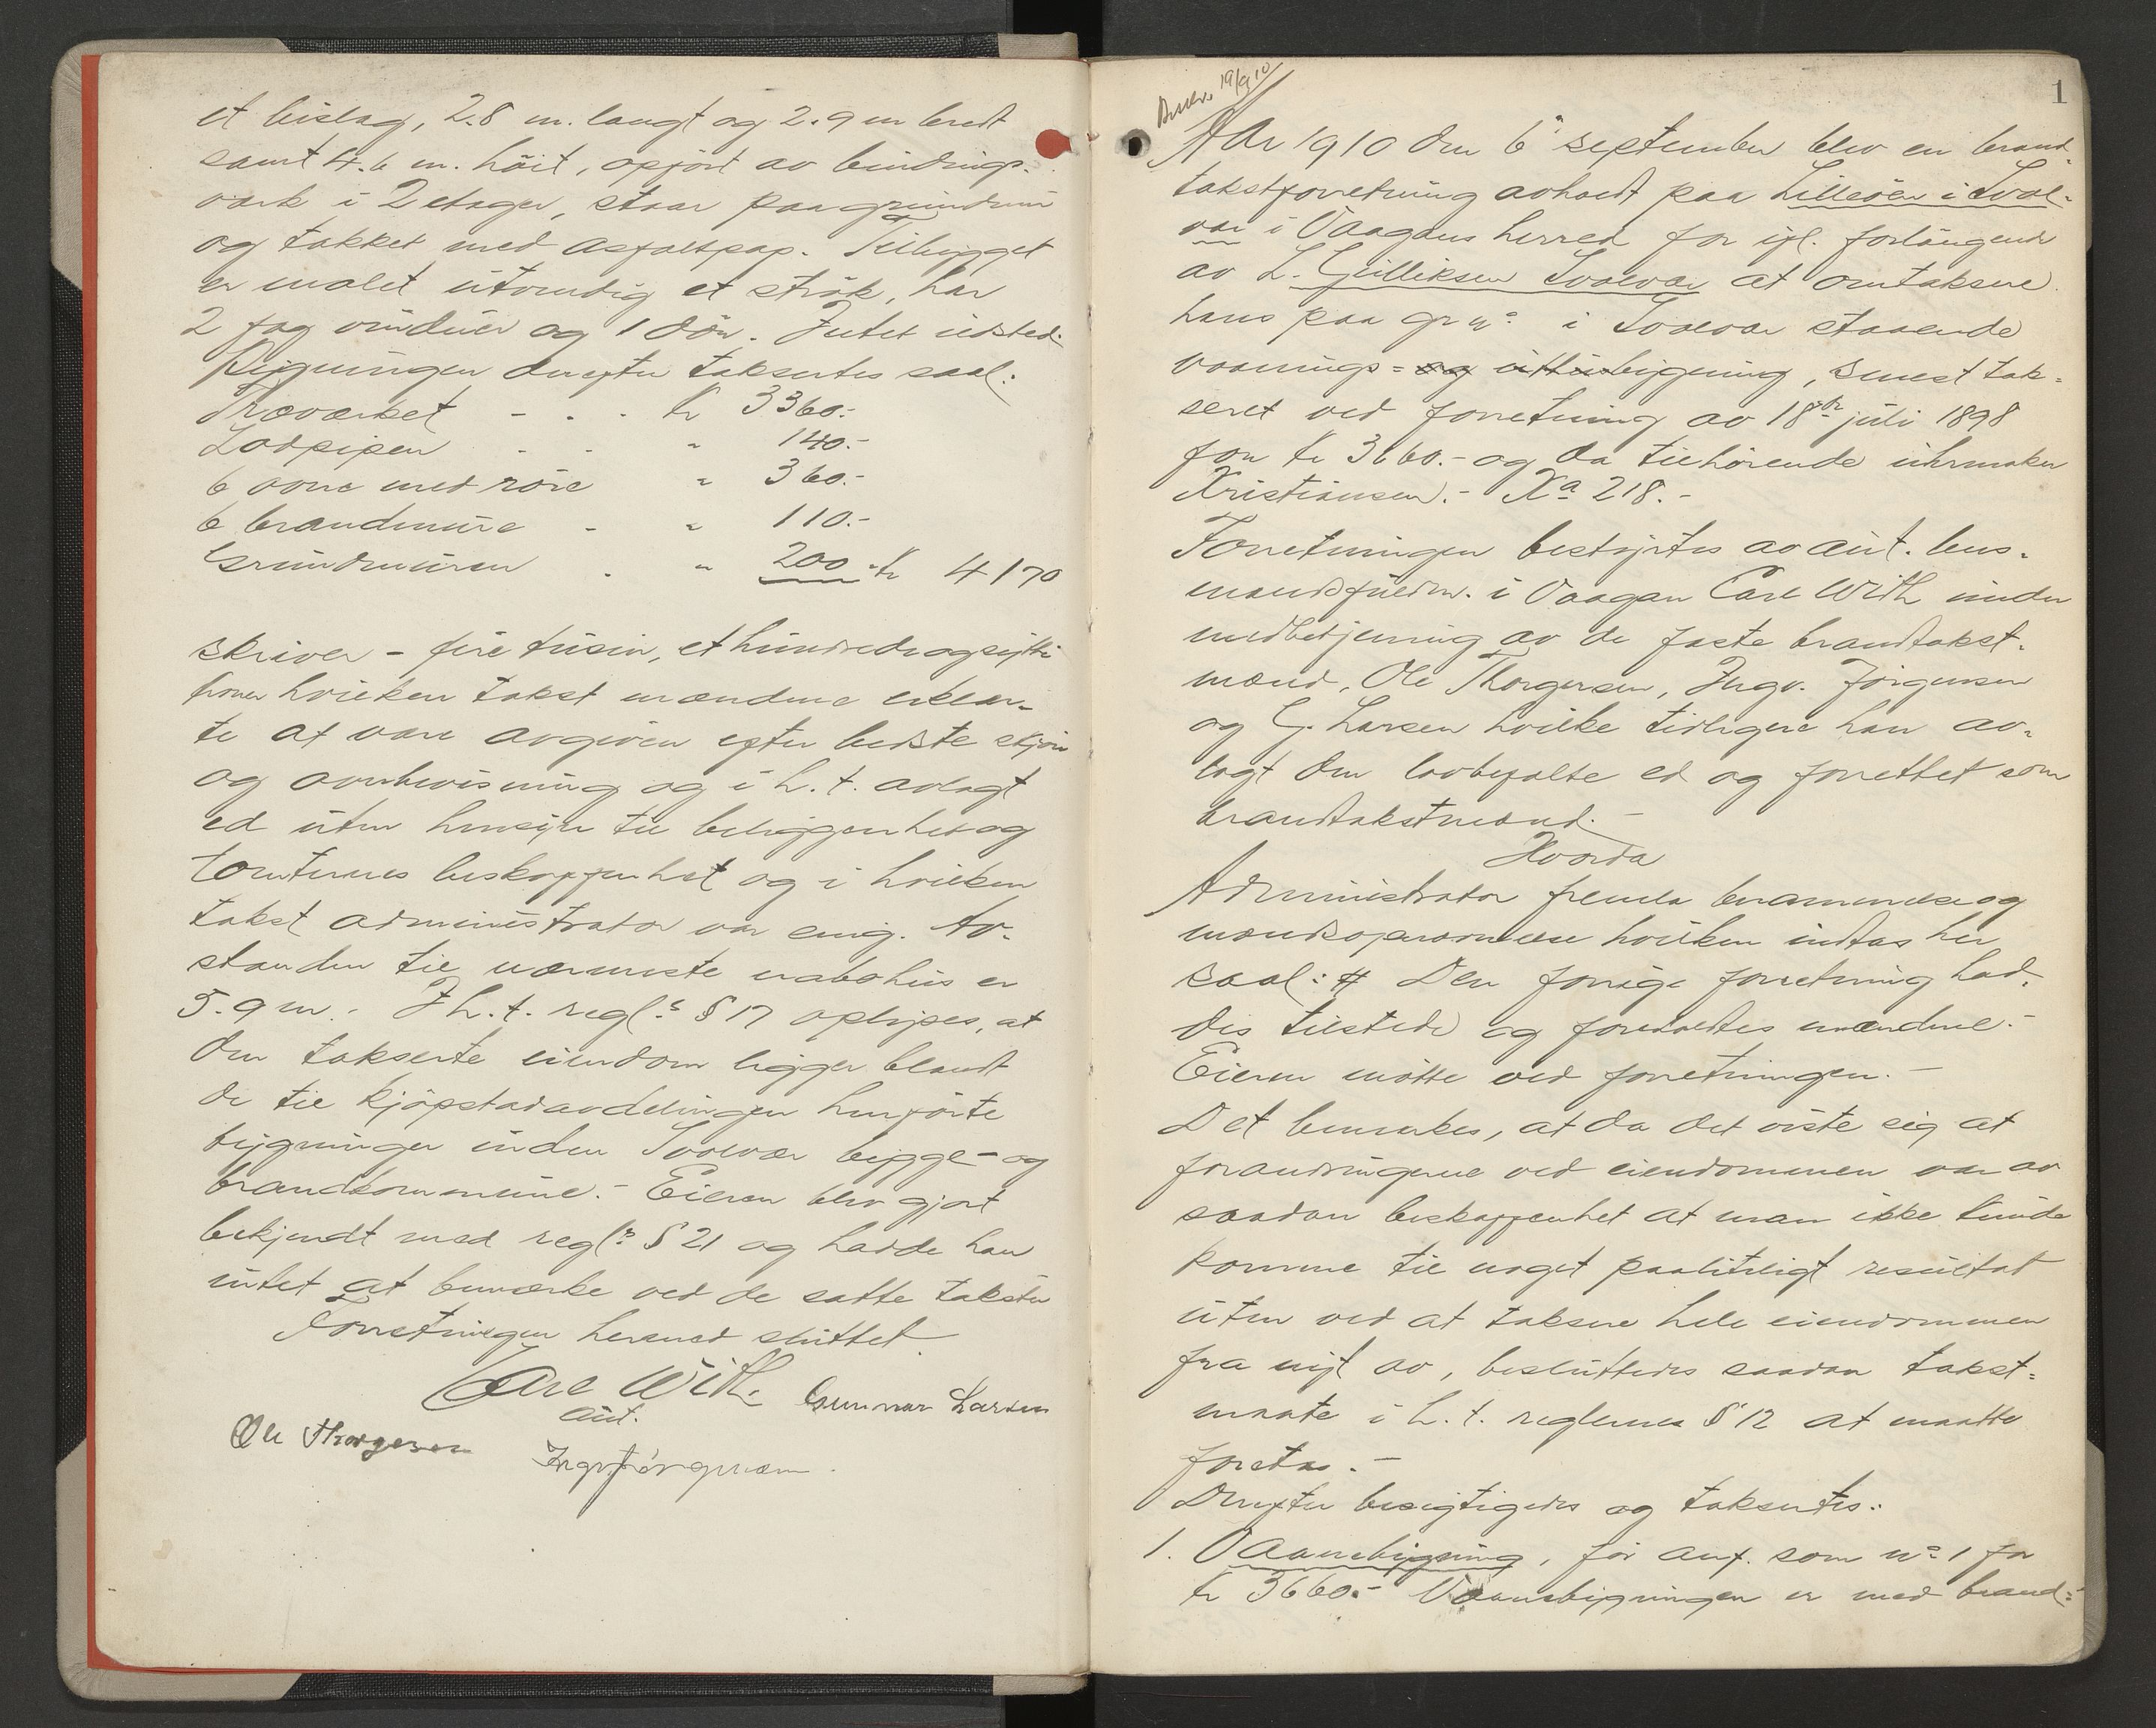 et bislag, 2.8 m. langt og 2.9 m bredt
samt 4.6 m. høit, opført av bindings-
værk i 2 etager, staar paa grundmur
og takket med asfaltpap. Tilbygget
er malet utvendig et strøk, har
2 fag vinduer og 1 dør. Intet ildsted.
Bygningen derefter taksertes saal:
Træværket - - - Kr 3360.-
Lodpipen - - " 140.-
6 ovne med röre " 360.-
6 brandmure - " 110.-
Grundmuren . " 200 Kr 4170
skriver - fire tusin, et hundrede og sytti
kroner hvilken takst mændene erklær-
te at være avgiven efter bedste skjøn
og overbevisning og i h. t. avlagt
ed uten hensyn til beliggenhet og
tomternes beskaffenhet og i hvilken
takst administrator var enig. Av-
standen til nærmeste nabohus er
5.9 m.- I h. t. regl.s § 17 oplyses, at
den takserte eiendom ligger blandt
de til kjøpstadavdelingen henførte
bygninger inden Svolvær bygge- og
brandkommune.- Eieren blev gjort
bekjendt med regl.s § 21 og hadde han
intet at bemærke ved de satte takster
Forretningen hermed sluttet.
Carl With
aut.
Gunnar Larsen
Ole Thorgersen
Ingv. Jörgensen.
1
19/9 10
Aar 1910 den 6" september blev en brand-
takstforretning avholdt paa Lilleöen i Svol-
vær i Vaagans herred for ifl. forlangende
av L. Gulliksen Svolvær at omtaksere
hans paa gr no i Svolvær staaende
vaanings- og uthusbygning, senest tak-
seret ved forretning av 18de juli 1898
for kr 3660.- og da tilhörende uhrmaker
Kristiansen.- Ka 218.-
Forretningen bestyrtes av aut. lens-
mandsfuldm. i Vaagan Carl With under
medbetjening av de faste brandtakst-
mænd, Ole Thorgersen, Ingv. Jörgensen
og G. Larsen hvilke tidligere har av-
lagt den lovbefalte ed og forrettet som
brandtakstmænd.-
Hvorda
Administrator fremla berammelse og
mandsopnævnelse hvilken indtas her
saal: # Den forrige forretning had-
des tilstede og foreholdtes mændene.-
Eieren mötte ved forretningen.-
Det bemerkes, at da det viste sig at
forandringerne ved eiendommen var av
saadan beskaffenhet at man ikke kunde
komme til noget paaliteligt resultat
uten ved at taksere hele eiendommen
fra nyt av, besluttedes saadan takst-
maate i h. t. reglernes § 12 at maatte
foretas.-
Derefter besigtigedes og taksertes:
1. Vaanebygning, för anf. som no 1 for
kr 3660.- Vaanebygningen er med brand-